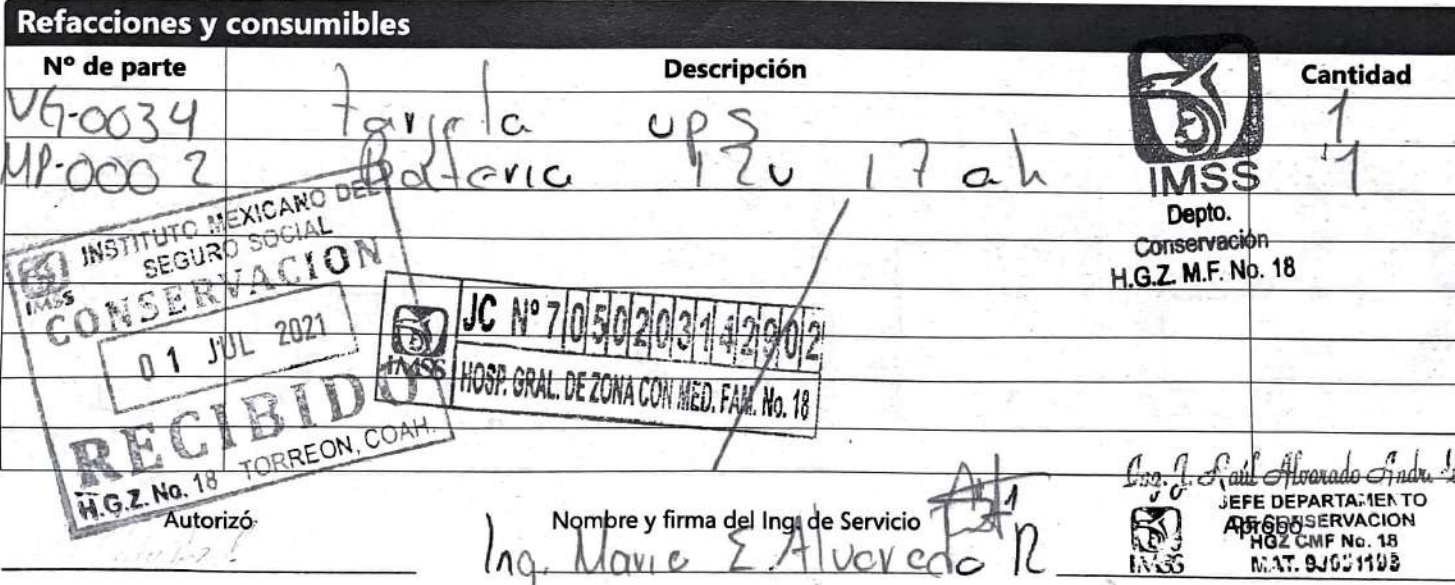 Refacciones y consumibles
Nº de parte Descripción Cantidad
VG-0034 Tarjeta UPS 1
MP-0002 Bateria 12v 17 ah 1
IMSS
Depto.
Conservación
H.G.Z. M.F. No. 18
INSTITUTO MEXICANO DEL
SEGURO SOCIAL
IMSS
CONSERVACION
01 JUL 2021
RECIBIDO
H.G.Z. No. 18 TORREON, COAH.
IMSS
JC Nº 7050203142902
HOSP. GRAL. DE ZONA CON MED. FAM. No. 18
Autorizó
Nombre y firma del Ing. de Servicio
Ing. Mario E. Alvarado R
Ing. J. Raúl Alvarado
JEFE DEPARTAMENTO
DE CONSERVACION
Aprobó
HGZ CMF No. 18
IMSS
MAT.